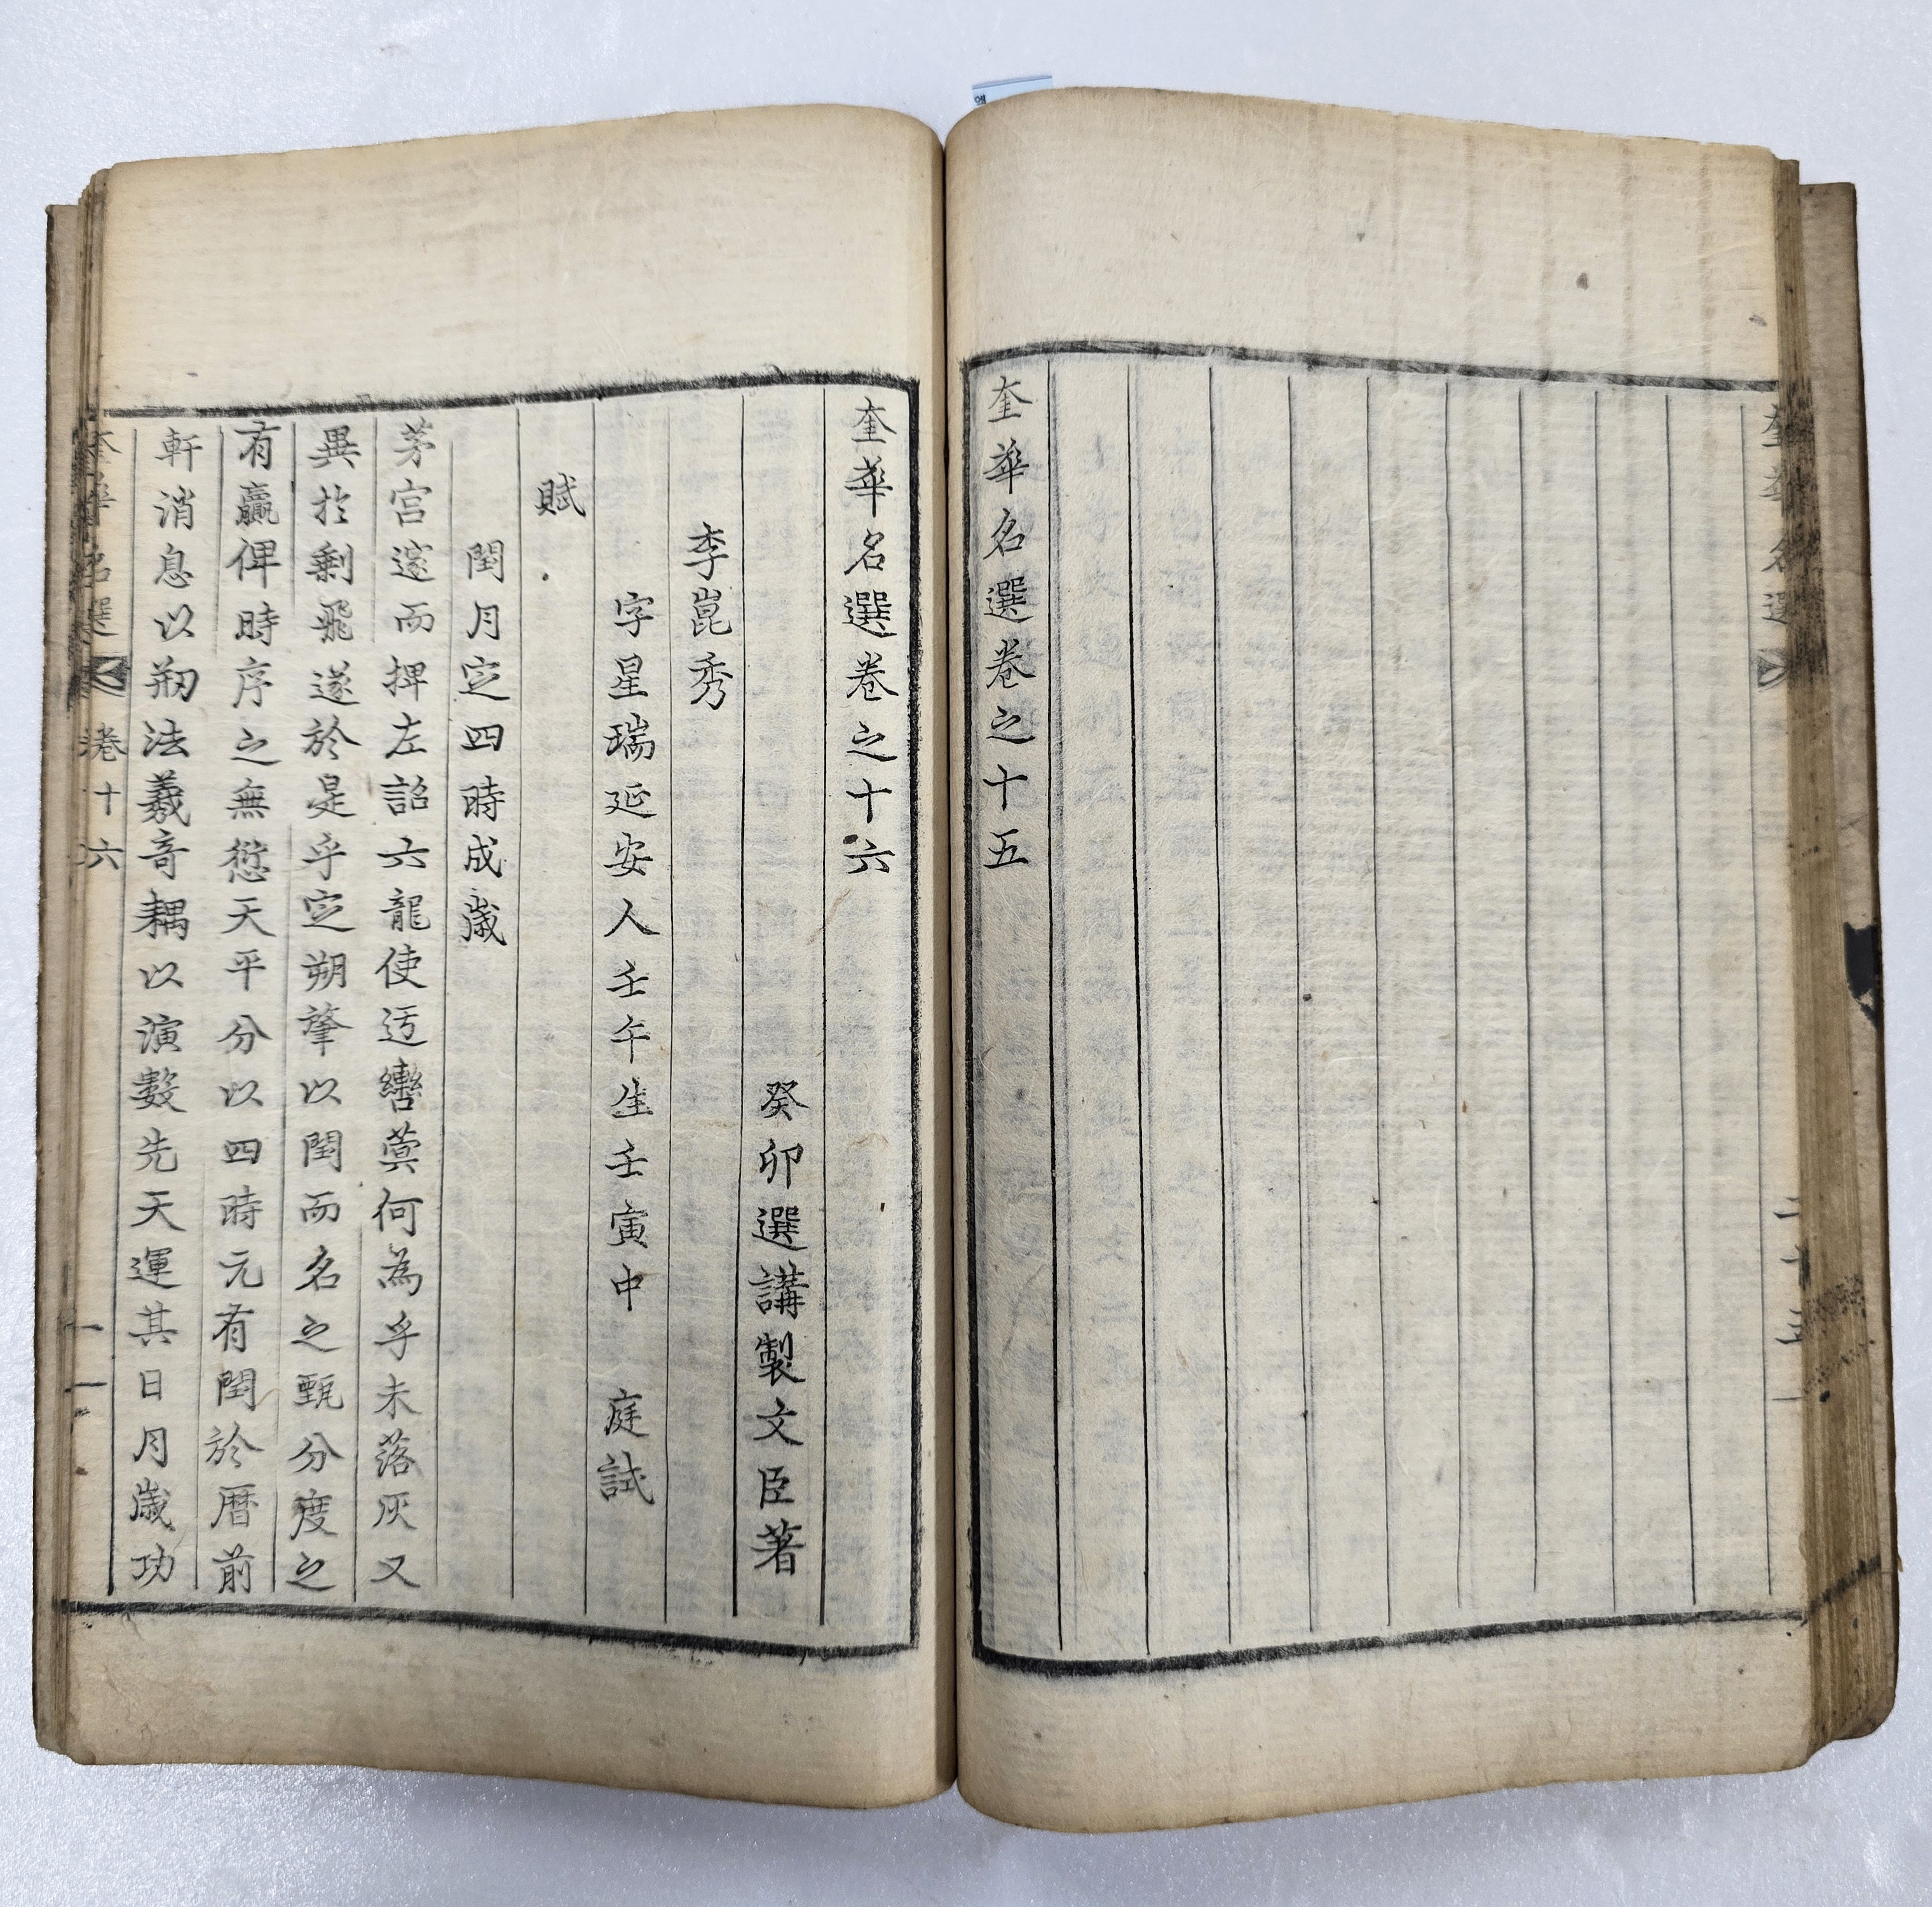 奎華名選
二十五
奎華名選卷之十五
奎華名選卷之十六
癸卯選講製文臣著
李崑秀
字星瑞延安人壬午生壬寅中 庭試
賦
閏月定四時成歲
茅宮邃而捭左詔六龍使迃轡蓂何為乎未落灰又
異扵剩飛遂於是乎定朔肇以閏而名之甄分度之
有贏俾時序之無愆天平分以四時元有閏於曆前
軒消息以刱法羲奇耦以演數先天運其日月歲功
奎華名選 卷十六
一